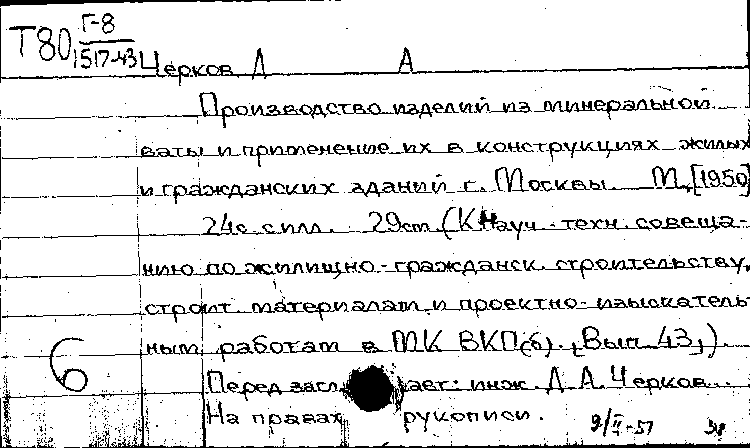 Т80 Г-8
1517-43
Черков Д А
Производство изделий из минеральной
ваты и применение их в конструкциях жилых
и гражданских зданий г. Москвы. М., [1950]
24с. с илл. 29см. (К Науч.-техн. совеща-
нию по жилищно-гражданск. строительству,
строит. материалам и проектно-изыскатель
ным работам в МК ВКП(б). Вып. 43).
6
Перед загл. авт: инж. Д. А. Черков...
На правах рукописи.
9/II-51